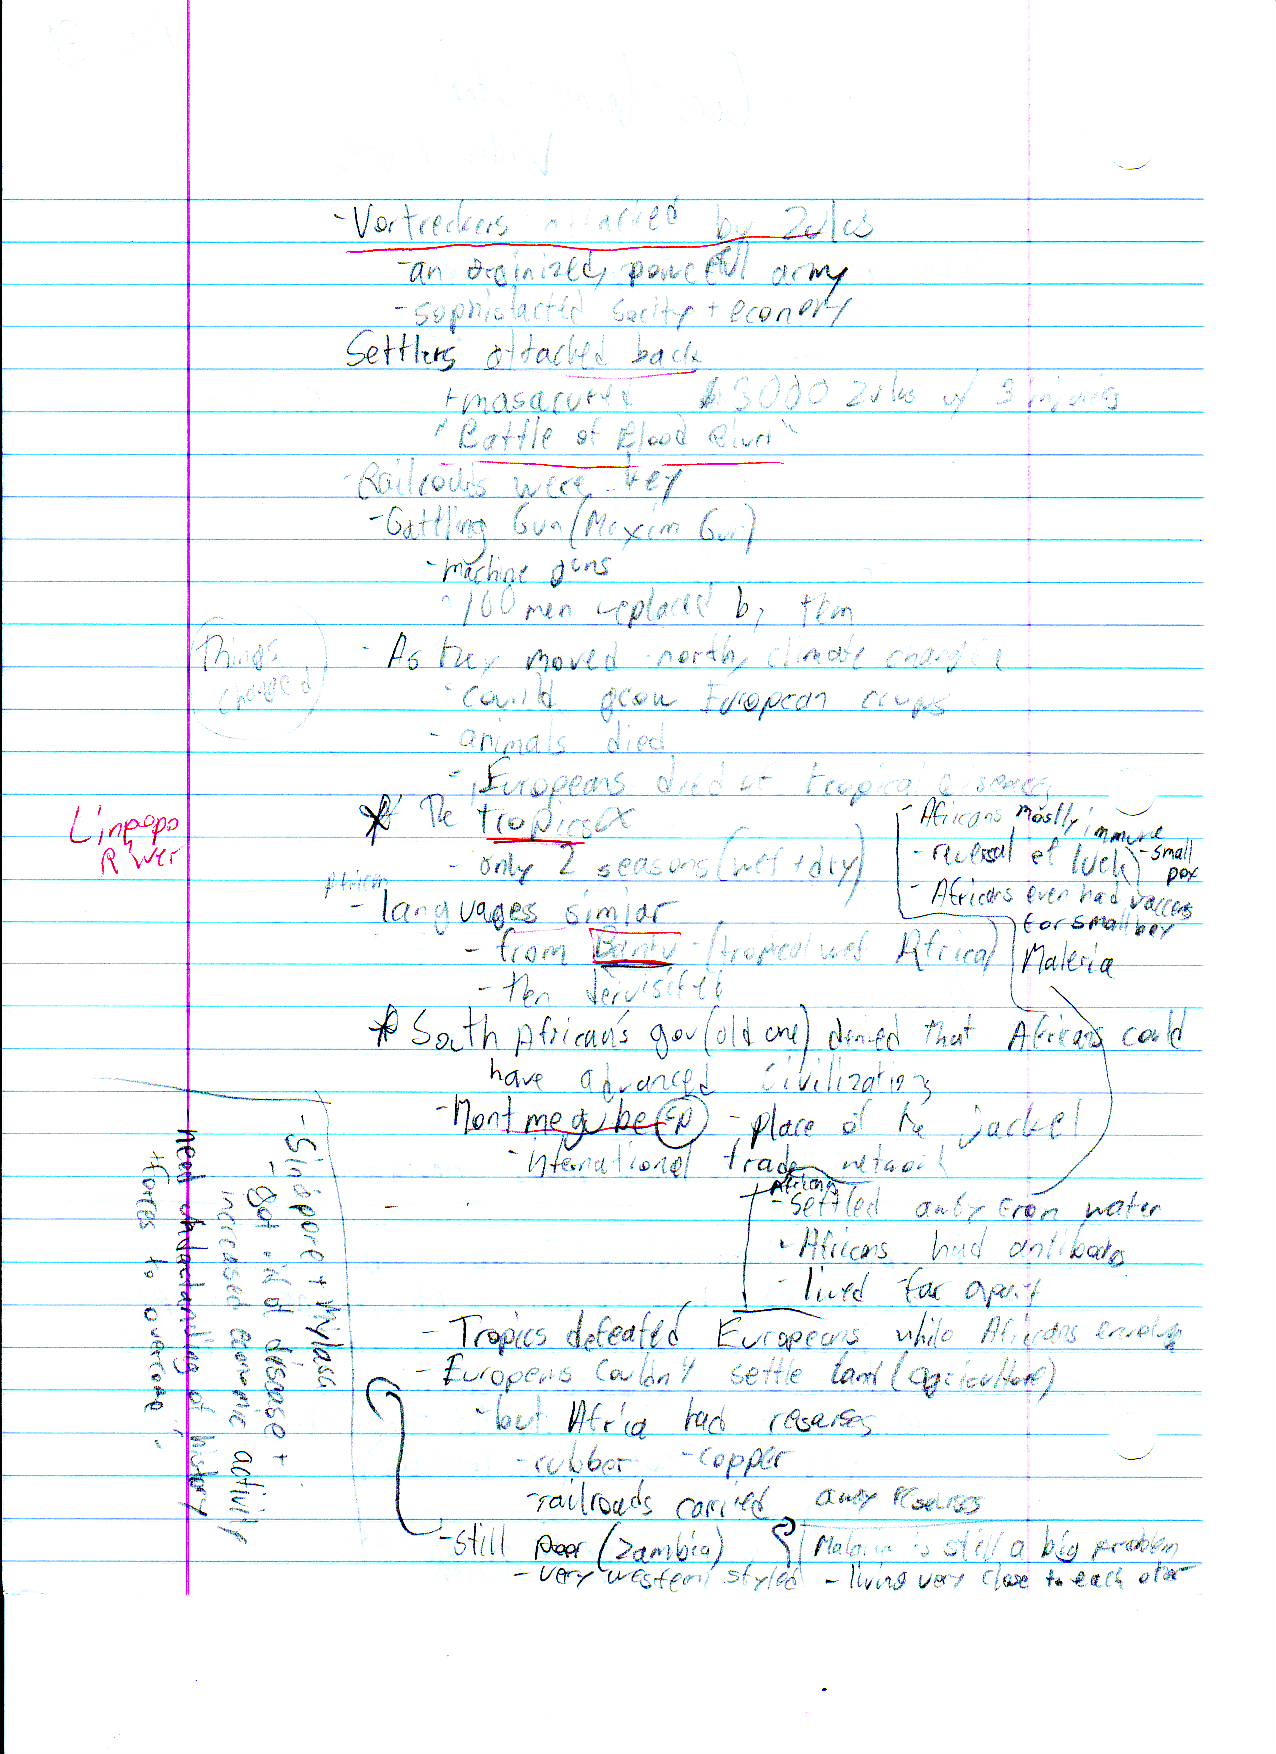 - Vortreckers attacked by Zulus
- an orginized, powerful army
- sophistacted socity + econemy
Settlers attacked back
+ masacured 3000 Zulus w/ 3 injuries
"Battle of Blood River"
- Railroads were key
- Gattling Gun (Maxim Gun)
- machine guns
- 100 men replaced by them
Things changed
- As they moved north, climate changed
- could grow European crops
- animals died
- Europeans died of tropical
Limpopo River
* The tropics
- only 2 seasons (wet + dry)
- Africans mostly immune
- reversal of luck
- small pox
- Africans even had
for small
Maleria
African
- languages similar
- from Bantu - (tropical west Africa)
- then
* South African's gov (old one) denied that Africans could
have advanced civilizations
- place of the jackel
- international trade network
Africans
- settled away from water
- Africans had
- lived far apart
- Tropics defeated Europeans while Africans
- Europeans couldn't settle land (agriculture)
- but Africa had
- rubber - copper
- railroads carried away
- still poor (Zambia)
Malaria is still a big problem
- very western styled - living very close to each other
- got rid of disease +
increased economic activity
of history
+ forces to overcome